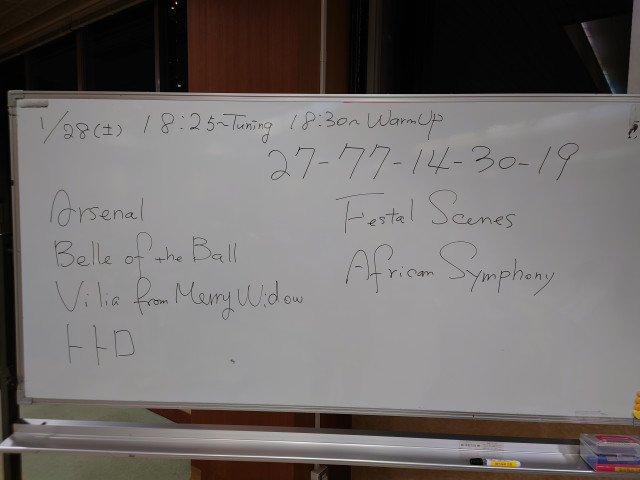 1/28(土) 18:25~Tuning 18:30~WarmUp
27-77-14-30-19
Arsenal
Belle of the Ball
Vilia from Merry Widow
トトロ
Festal Scenes
African Symphony